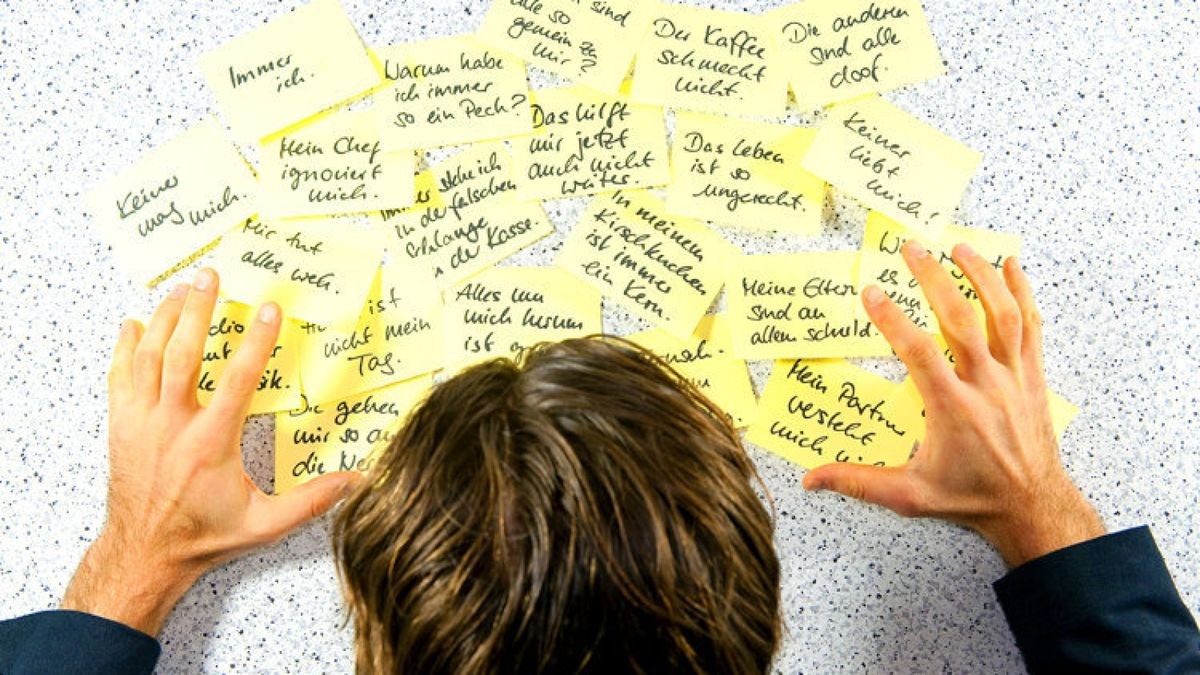 Immer
ich.
Warum habe
ich immer
so ein Pech?
alle so
gemein zu
mir?
Der Kaffee
schmeckt
nicht.
Die anderen
sind alle
doof.
Keiner
mag mich.
Mein Chef
ignoriert
mich.
Immer stehe ich
in der falschen
Schlange
an der Kasse.
Das hilft
mir jetzt
auch nicht
weiter.
Das Leben
ist so
ungerecht.
Keiner
liebt
mich!
Mir tut
alles weh.
In meinem
Kirschkuchen
ist immer
ein Kern.
ist
nicht mein
Tag.
Alles um
mich herum
ist
Meine Eltern
sind an
allem schuld.
Die gehen
mir so
die
Mein Partner
versteht
mich